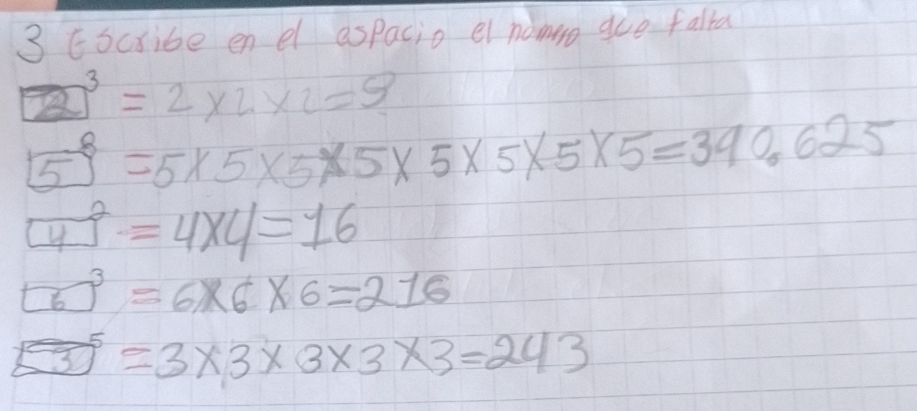 3 Escribe en el espacio el numero que falta
2³ = 2×2×2=8
5⁸ =5×5×5×5×5×5×5×5=390.625
4² = 4×4=16
6³ = 6×6×6=216
3⁵ =3×3×3×3×3=243